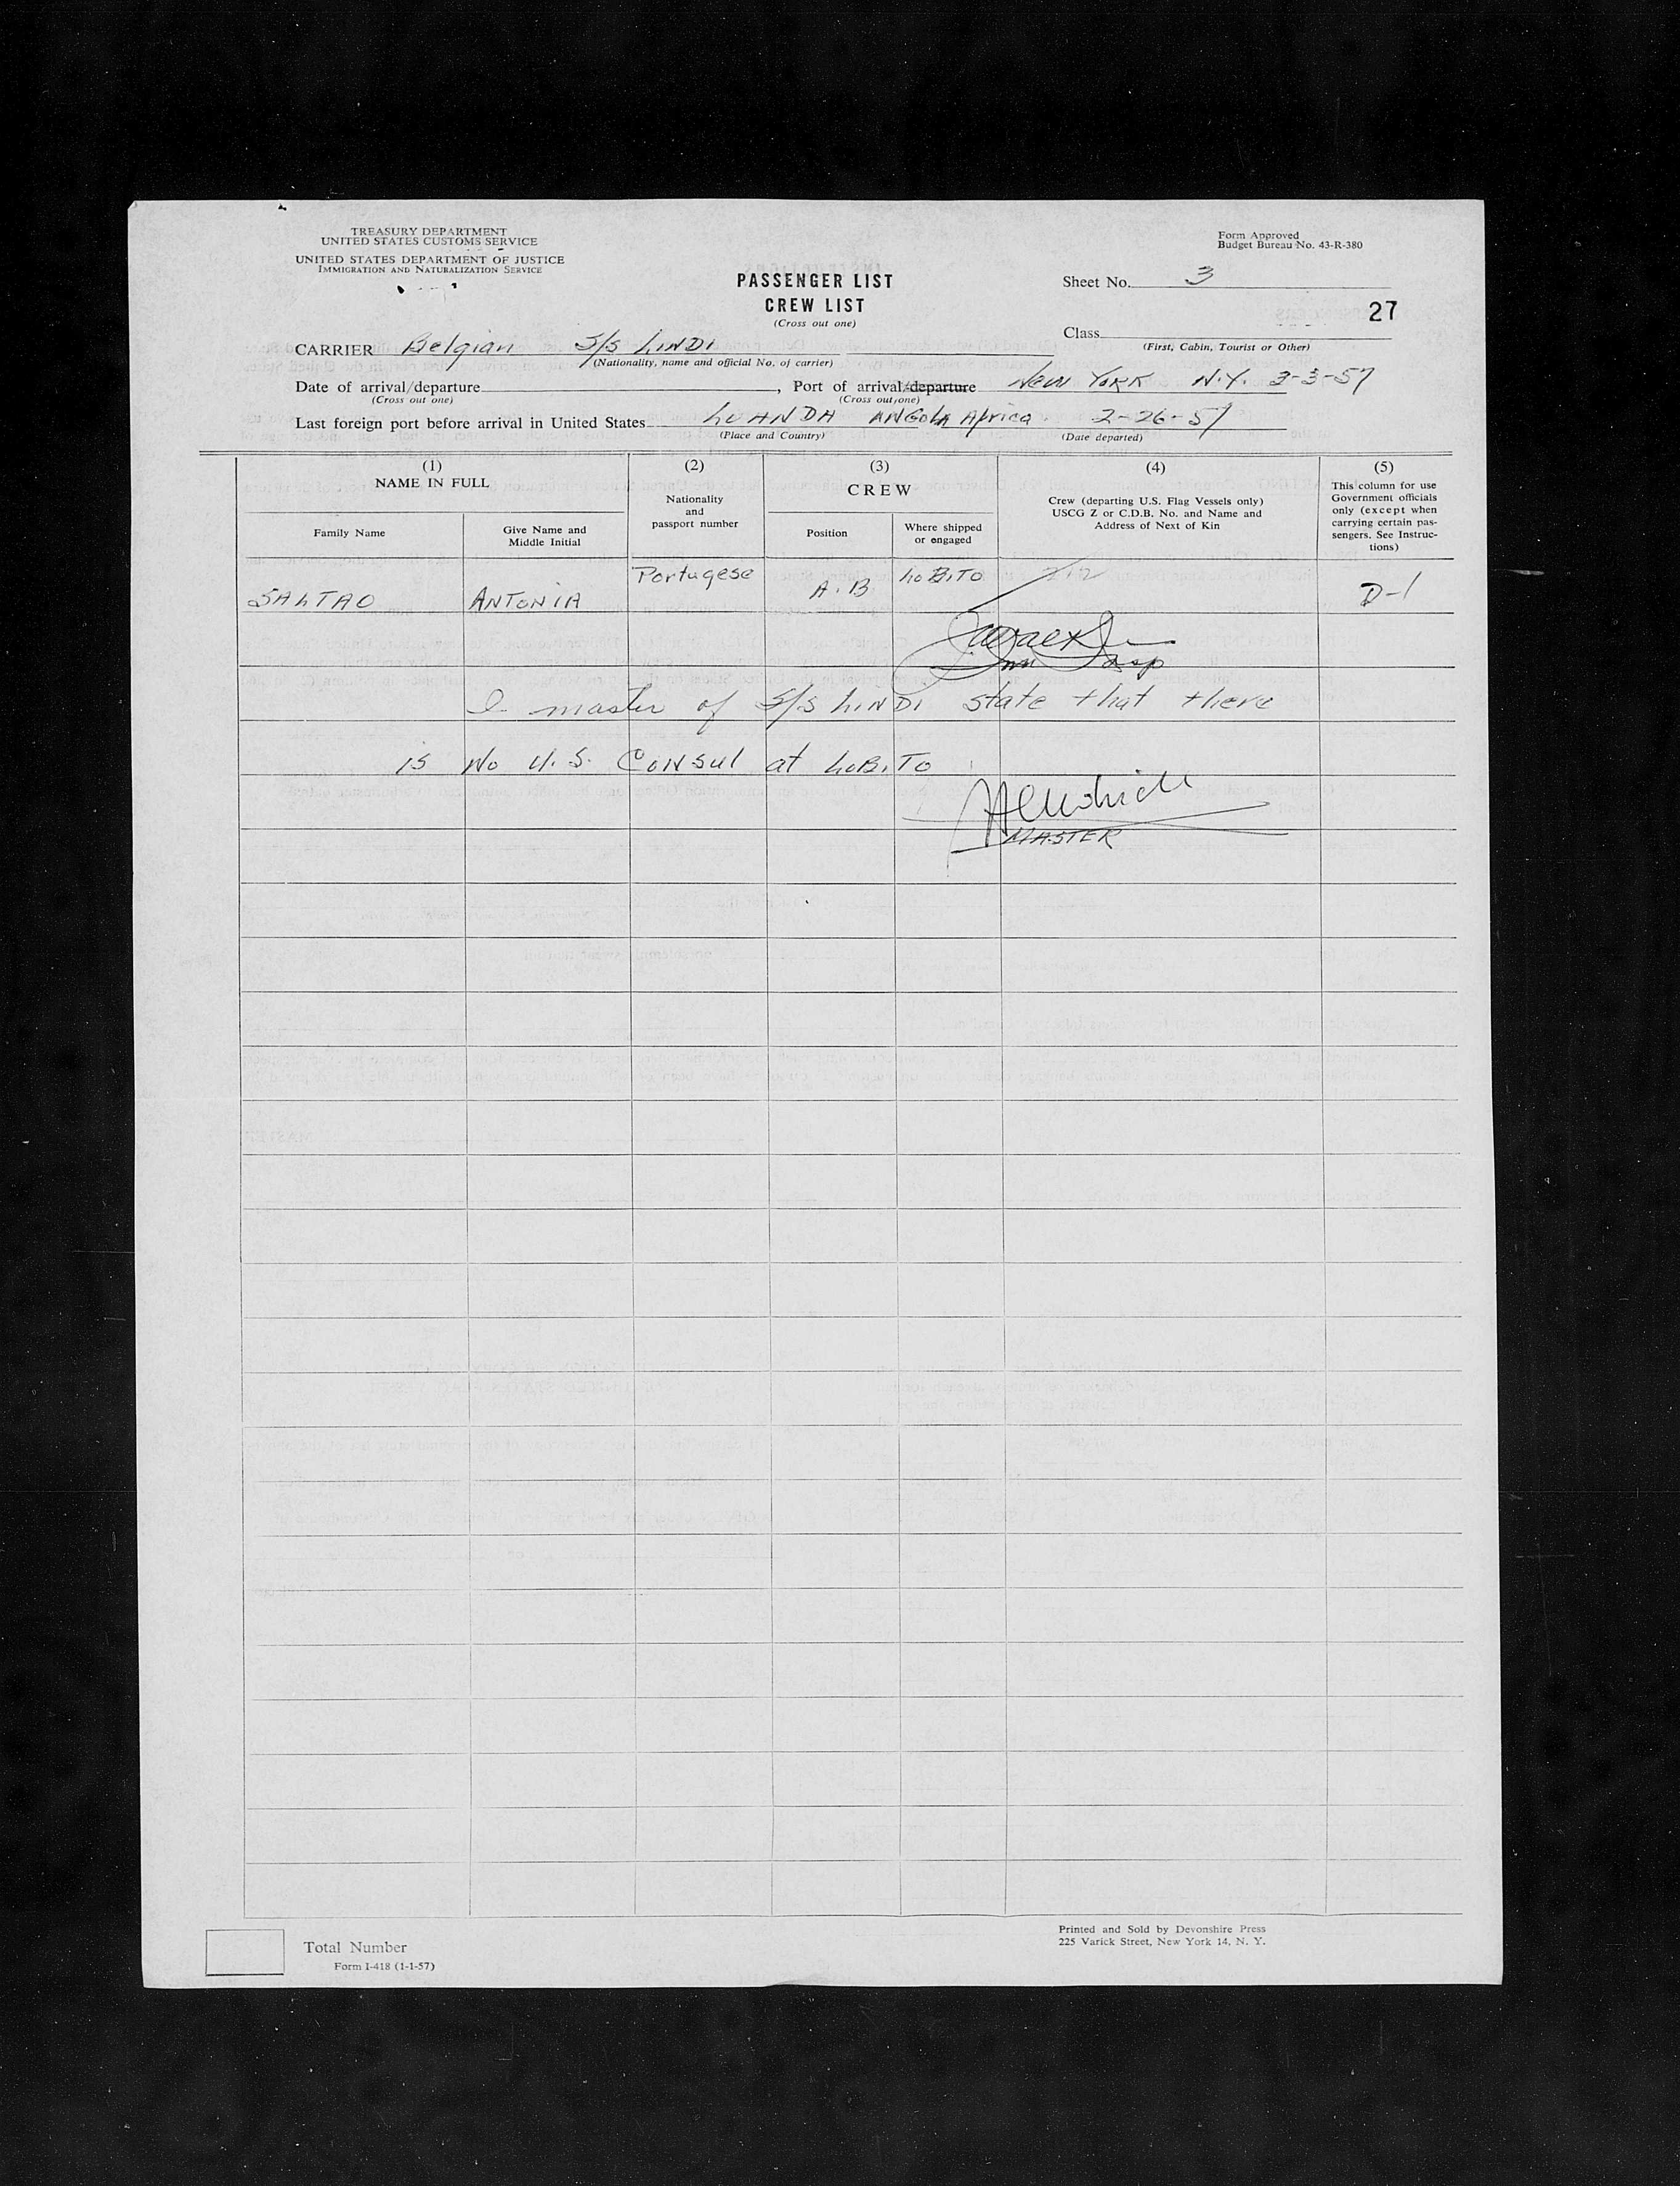 TREASURY DEPARTMENT
UNITED STATES CUSTOMS SERVICE
UNITED STATES DEPARTMENT OF JUSTICE
IMMIGRATION AND NATURALIZATION SERVICE
Form Approved
Budget Bureau No. 43-R-380
PASSENGER LIST
CREW LIST
(Cross out one)
Sheet No. 3
27
Class
(First, Cabin, Tourist or Other)
CARRIER Belgian S/S LINDI
(Nationality, name and official No. of carrier)
Date of arrival/departure , Port of arrival/departure New York N.Y. 3-3-57
(Cross out one) (Cross out one)
Last foreign port before arrival in United States LUANDA ANGola Africa. 2-26-57
(Place and Country) (Date departed)
(1) (2) (3) (4) (5)
NAME IN FULL
Family Name
Give Name and
Middle Initial
Nationality
and
passport number
CREW
Position
Where shipped
or engaged
Crew (departing U.S. Flag Vessels only)
USCG Z or C.D.B. No. and Name and
Address of Next of Kin
This column for use
Government officials
only (except when
carrying certain pas-
sengers. See Instruc-
tions)
SALTAO ANTONIA Portugese A.B LOBITO D-1
Imm Insp
I master of S/S LINDI state that there
is No U.S. Consul at LOBITO
MASTER
Total Number
Form I-418 (1-1-57)
Printed and Sold by Devonshire Press
225 Varick Street, New York 14, N. Y.